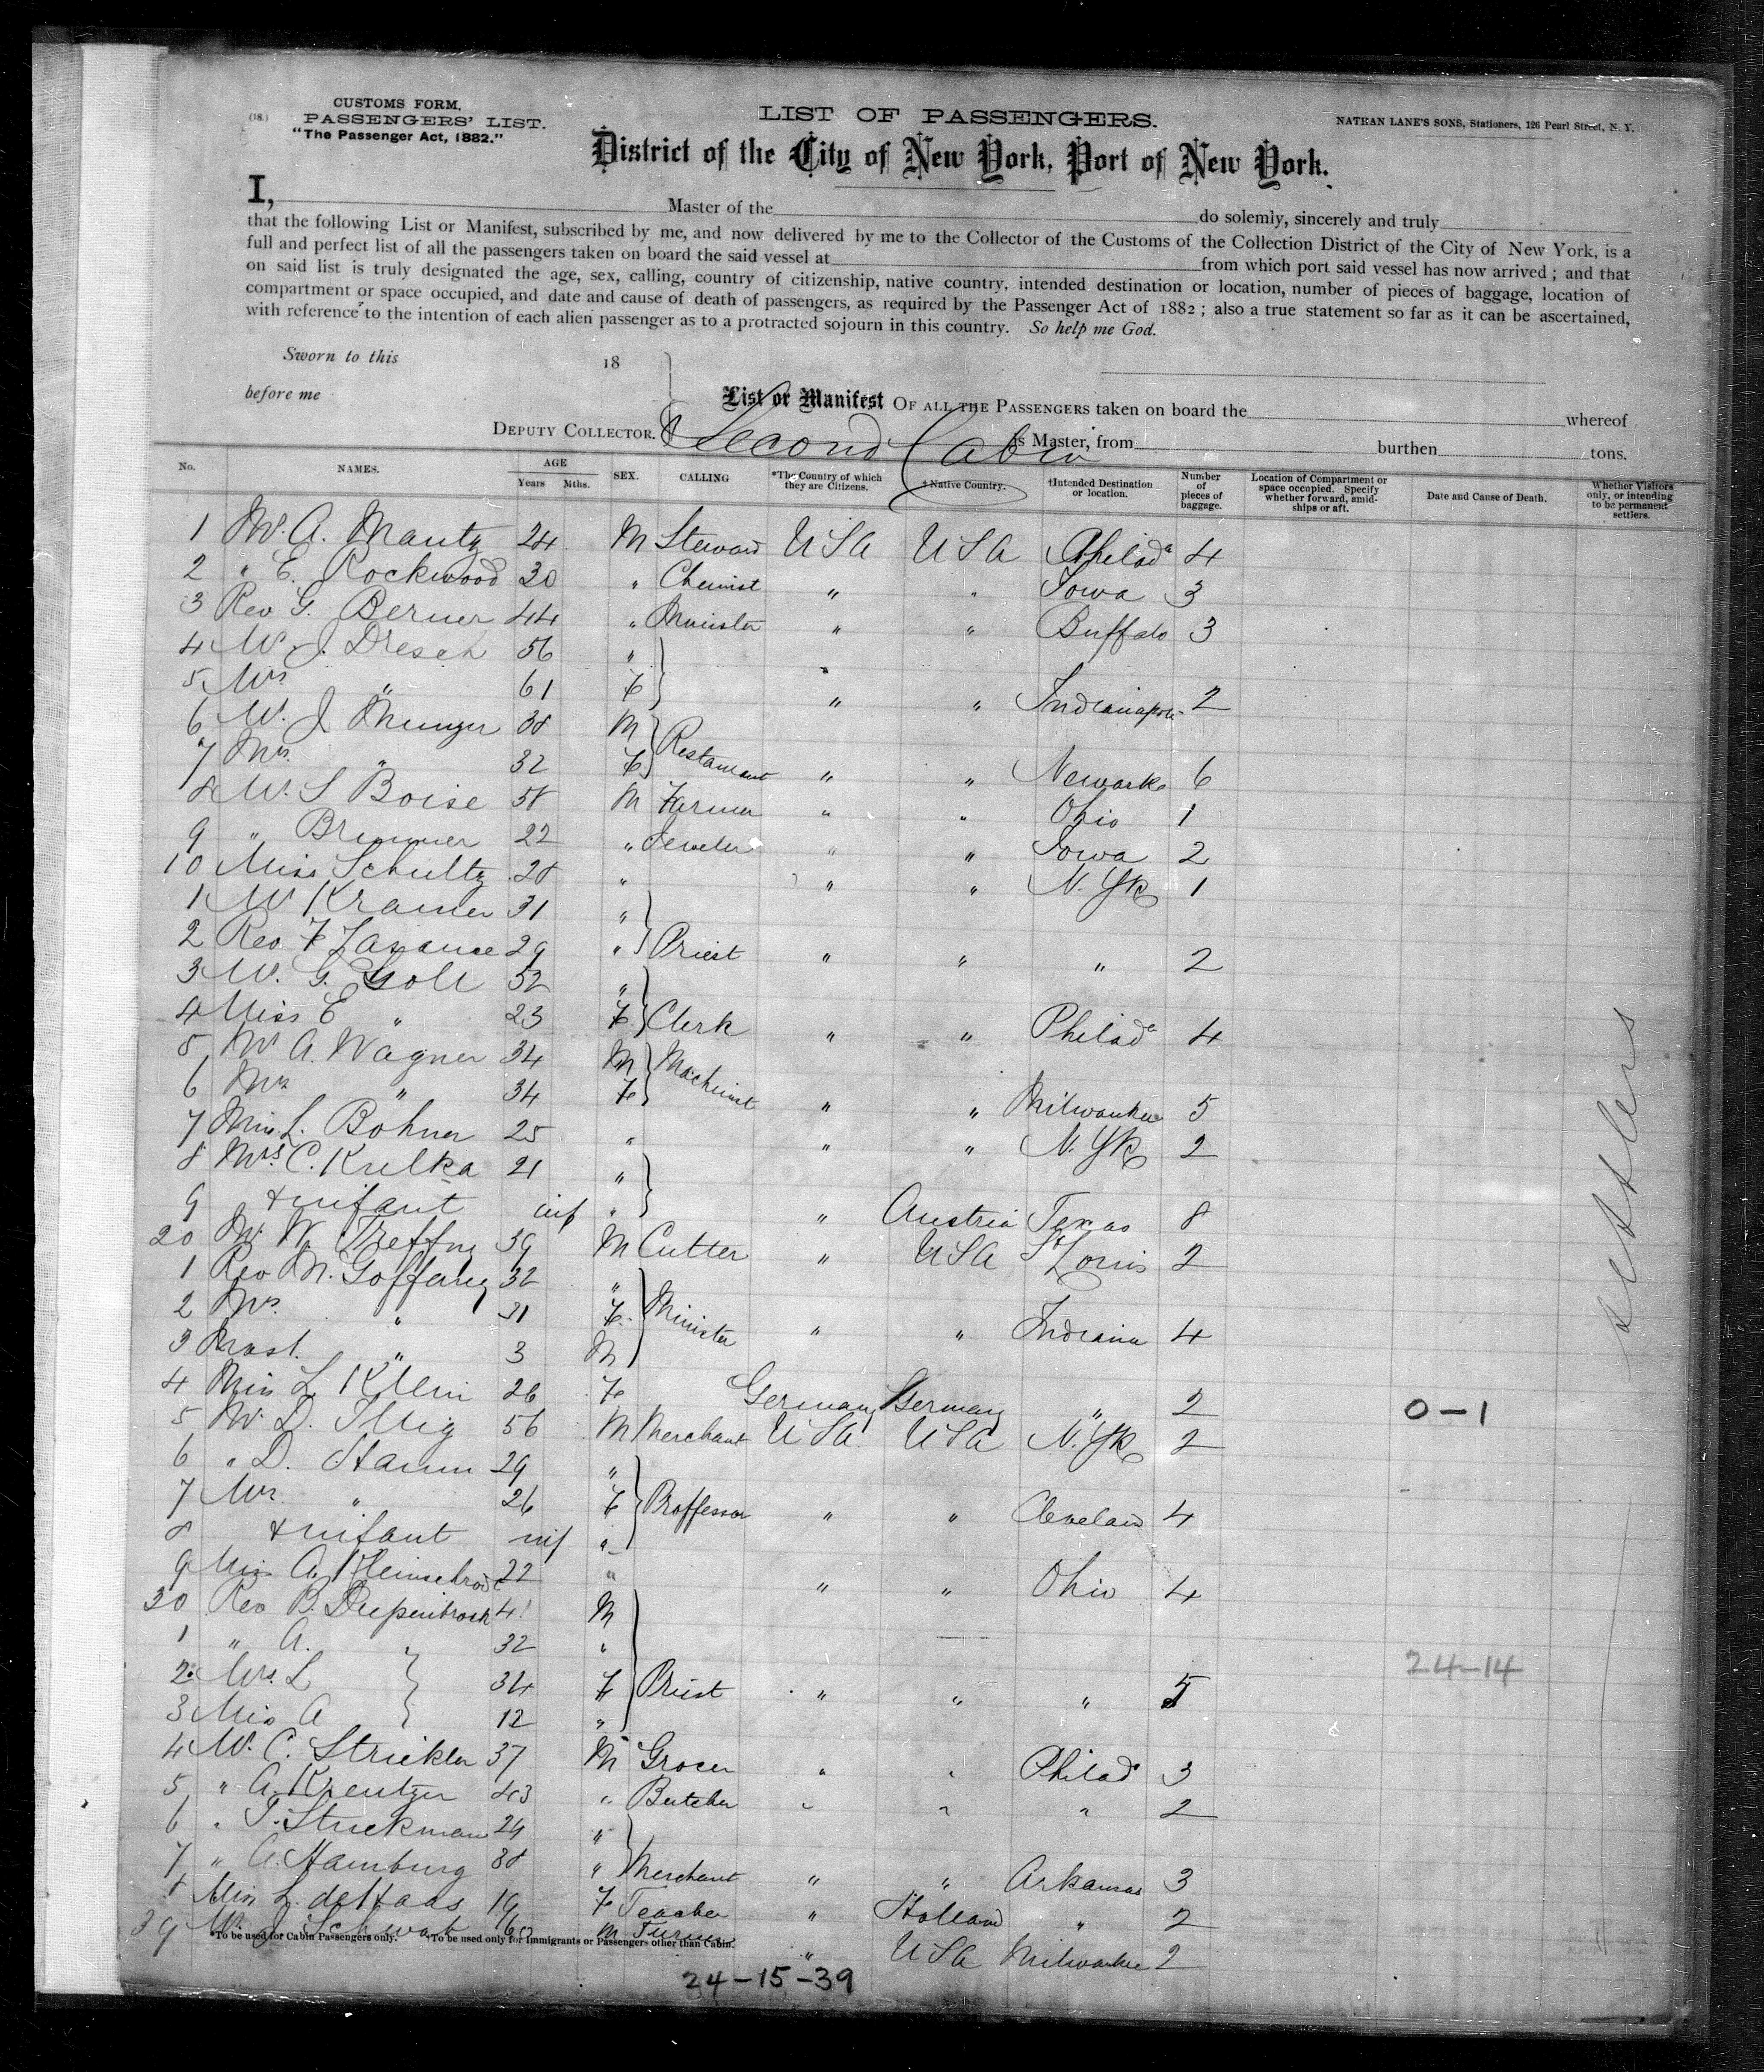 (18.)
CUSTOMS FORM,
PASSENGERS' LIST.
"The Passenger Act, 1882."
LIST OF PASSENGERS.
NATHAN LANE'S SONS, Stationers, 126 Pearl Street, N. Y.
District of the City of New York, Port of New York.
I, Master of the do solemly, sincerely and truly
that the following List or Manifest, subscribed by me, and now delivered by me to the Collector of the Customs of the Collection District of the City of New York, is a
full and perfect list of all the passengers taken on board the said vessel at from which port said vessel has now arrived ; and that
on said list is truly designated the age, sex, calling, country of citizenship, native country, intended destination or location, number of pieces of baggage, location of
compartment or space occupied, and date and cause of death of passengers, as required by the Passenger Act of 1882 ; also a true statement so far as it can be ascertained,
with reference to the intention of each alien passenger as to a protracted sojourn in this country. So help me God.
Sworn to this 18
before me
List or Manifest OF ALL THE PASSENGERS taken on board the whereof
DEPUTY COLLECTOR. is Master, from burthen tons.
Second Cabin
No. NAMES. AGE Years Mths. SEX. CALLING *The Country of which they are Citizens. †Native Country. †Intended Destination or location. Number of pieces of baggage. Location of Compartment or space occupied. Specify whether forward, amidships or aft. Date and Cause of Death. Whether Visitors only, or intending to be permanent settlers.
1 Mr. A. Mantz 24 M Steward USA USA Philada 4
2 " E. Rockwood 30 " Chemist " " Iowa 3
3 Rev G. Berner 44 " Minister " " Buffalo 3
4 Mr. J. Dresch 56 "
5 Mrs " 61 F " " Indianapolis 2
6 Mr. J Munger 38 M
7 Mrs. " 32 F Restaurant " " Newark 6
8 Mr. S Boise 58 M Farmer " " Ohio 1
9 " Brunner 22 " Jeweler " " Iowa 2
10 Miss Schultz 28 " " " N. Yk 1
1 Mr Kramer 31 "
2 Rev F Lasance 29 " Priest " " " 2
3 Mr. G. Goll 52 "
4 Miss E " 23 F Clerk " " Philada 4
5 Mr A. Wagner 34 M
6 Mrs " 34 F Machinist " " Milwaukee 5
7 Miss L. Bohner 25 " " " N. Yk 2
8 Mrs C. Kulka 21 "
9 + infant inf " " Austria Texas 8
20 Mr W. Treffny 39 M Cutter " USA St Louis 2
1 Rev M. Goffeney 32 "
2 Mrs. " 31 F
3 Mast. " 3 M Minister " " Indiana 4
4 Miss L Klein 26 F Germany Germany " 2 0-1
5 Mr. D. Illig 56 M Merchant USA USA N. Yk 2
6 " D. Hamm 29 "
7 Mrs " 26 F Proffessor " " Cleveland 4
8 + infant inf "
9 Miss A. Kleinschrod 22 " " " Ohio 4
30 Rev B. Diepenbrock 41 M
1 " A. " 32 "
2 Mrs L 34 F Priest " " " 5 24-14
3 Miss A 12 "
4 Mr. C. Strickler 37 M Grocer " " Philada 3
5 " A. Kreutzer 43 " Butcher " " " 2
6 " T. Stuckman 24 "
7 " A. Hamburg 38 " Merchant " " Arkansas 3
8 Miss L. deHaas 19 F Teacher " Holland " 2
39 Mr. J. Schwab 60 M " USA Milwaukee 2
settlers
*To be used for Cabin Passengers only. †To be used only for Immigrants or Passengers other than Cabin.
24-15-39